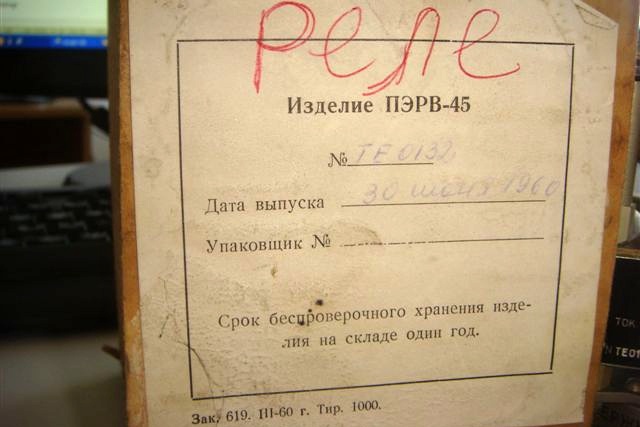 реле
Изделие ПЭРВ-45
№ ТЕ 0132
Дата выпуска 30 июня 1960
Упаковщик №
Срок беспроверочного хранения изде-
лия на складе один год.
Зак. 619. III-60 г. Тир. 1000.
ТОК
N TE01